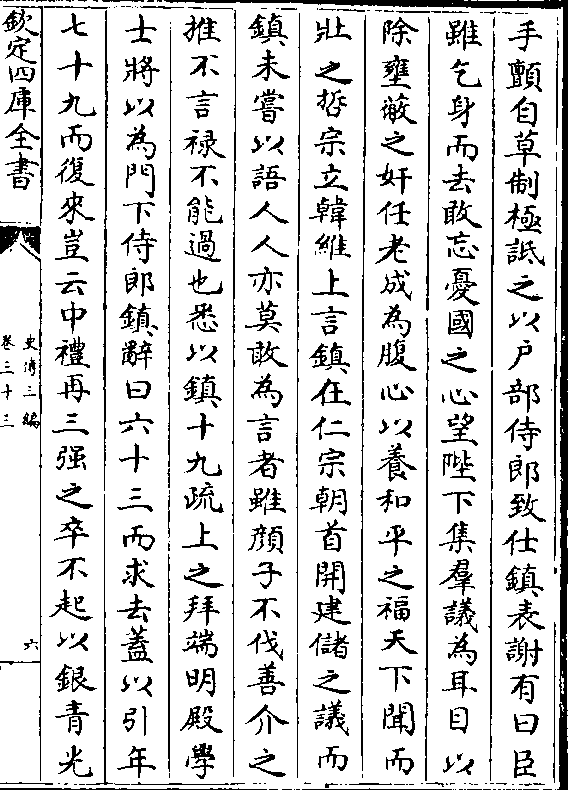 手顫自草制極詆之以戶部侍郎致仕鎮表謝有曰臣
雖乞身而去敢忘憂國之心望陛下集羣議為耳目以
除壅蔽之奸任老成為腹心以養和平之福天下聞而
壯之哲宗立韓維上言鎮在仁宗朝首開建儲之議而
鎮未嘗以語人人亦莫敢為言者雖顔子不伐善介之
推不言禄不能過也悉以鎮十九疏上之拜端明殿學
士將以為門下侍郎鎮辭曰六十三而求去葢以引年
七十九而復來豈云中禮再三强之卒不起以銀青光
欽定四庫全書
史傳三編
卷三十三
六